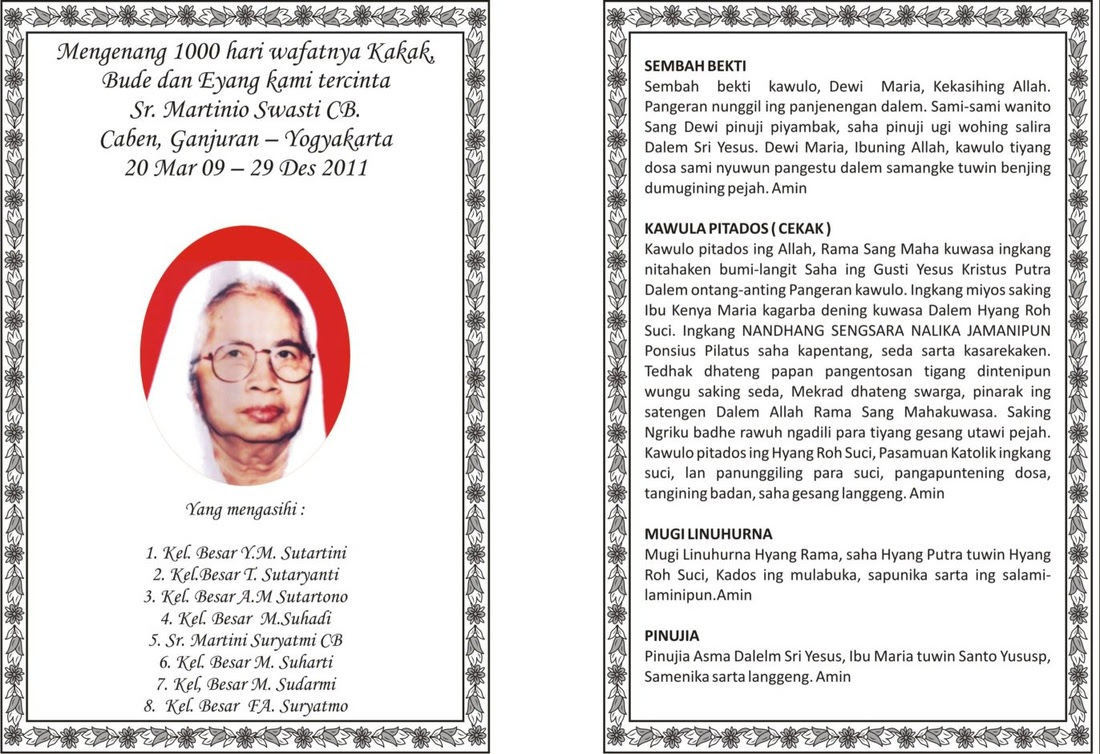 Mengenang 1000 hari wafatnya Kakak,
Bude dan Eyang kami tercinta
Sr. Martinio Swasti CB.
Caben, Ganjuran – Yogyakarta
20 Mar 09 – 29 Des 2011
Yang mengasihi :
1. Kel. Besar Y.M. Sutartini
2. Kel.Besar T. Sutaryanti
3. Kel. Besar A.M Sutartono
4. Kel. Besar M.Suhadi
5. Sr. Martini Suryatmi CB
6. Kel. Besar M. Suharti
7. Kel, Besar M. Sudarmi
8. Kel. Besar FA. Suryatmo
SEMBAH BEKTI
Sembah bekti kawulo, Dewi Maria, Kekasihing Allah.
Pangeran nunggil ing panjenengan dalem. Sami-sami wanito
Sang Dewi pinuji piyambak, saha pinuji ugi wohing salira
Dalem Sri Yesus. Dewi Maria, Ibuning Allah, kawulo tiyang
dosa sami nyuwun pangestu dalem samangke tuwin benjing
dumugining pejah. Amin
KAWULA PITADOS ( CEKAK )
Kawulo pitados ing Allah, Rama Sang Maha kuwasa ingkang
nitahaken bumi-langit Saha ing Gusti Yesus Kristus Putra
Dalem ontang-anting Pangeran kawulo. Ingkang miyos saking
Ibu Kenya Maria kagarba dening kuwasa Dalem Hyang Roh
Suci. Ingkang NANDHANG SENGSARA NALIKA JAMANIPUN
Ponsius Pilatus saha kapentang, seda sarta kasarekaken.
Tedhak dhateng papan pangentosan tigang dintenipun
wungu saking seda, Mekrad dhateng swarga, pinarak ing
satengen Dalem Allah Rama Sang Mahakuwasa. Saking
Ngriku badhe rawuh ngadili para tiyang gesang utawi pejah.
Kawulo pitados ing Hyang Roh Suci, Pasamuan Katolik ingkang
suci, lan panunggiling para suci, pangapuntening dosa,
tangining badan, saha gesang langgeng. Amin
MUGI LINUHURNA
Mugi Linuhurna Hyang Rama, saha Hyang Putra tuwin Hyang
Roh Suci, Kados ing mulabuka, sapunika sarta ing salami-
laminipun.Amin
PINUJIA
Pinujia Asma Dalelm Sri Yesus, Ibu Maria tuwin Santo Yususp,
Samenika sarta langgeng. Amin